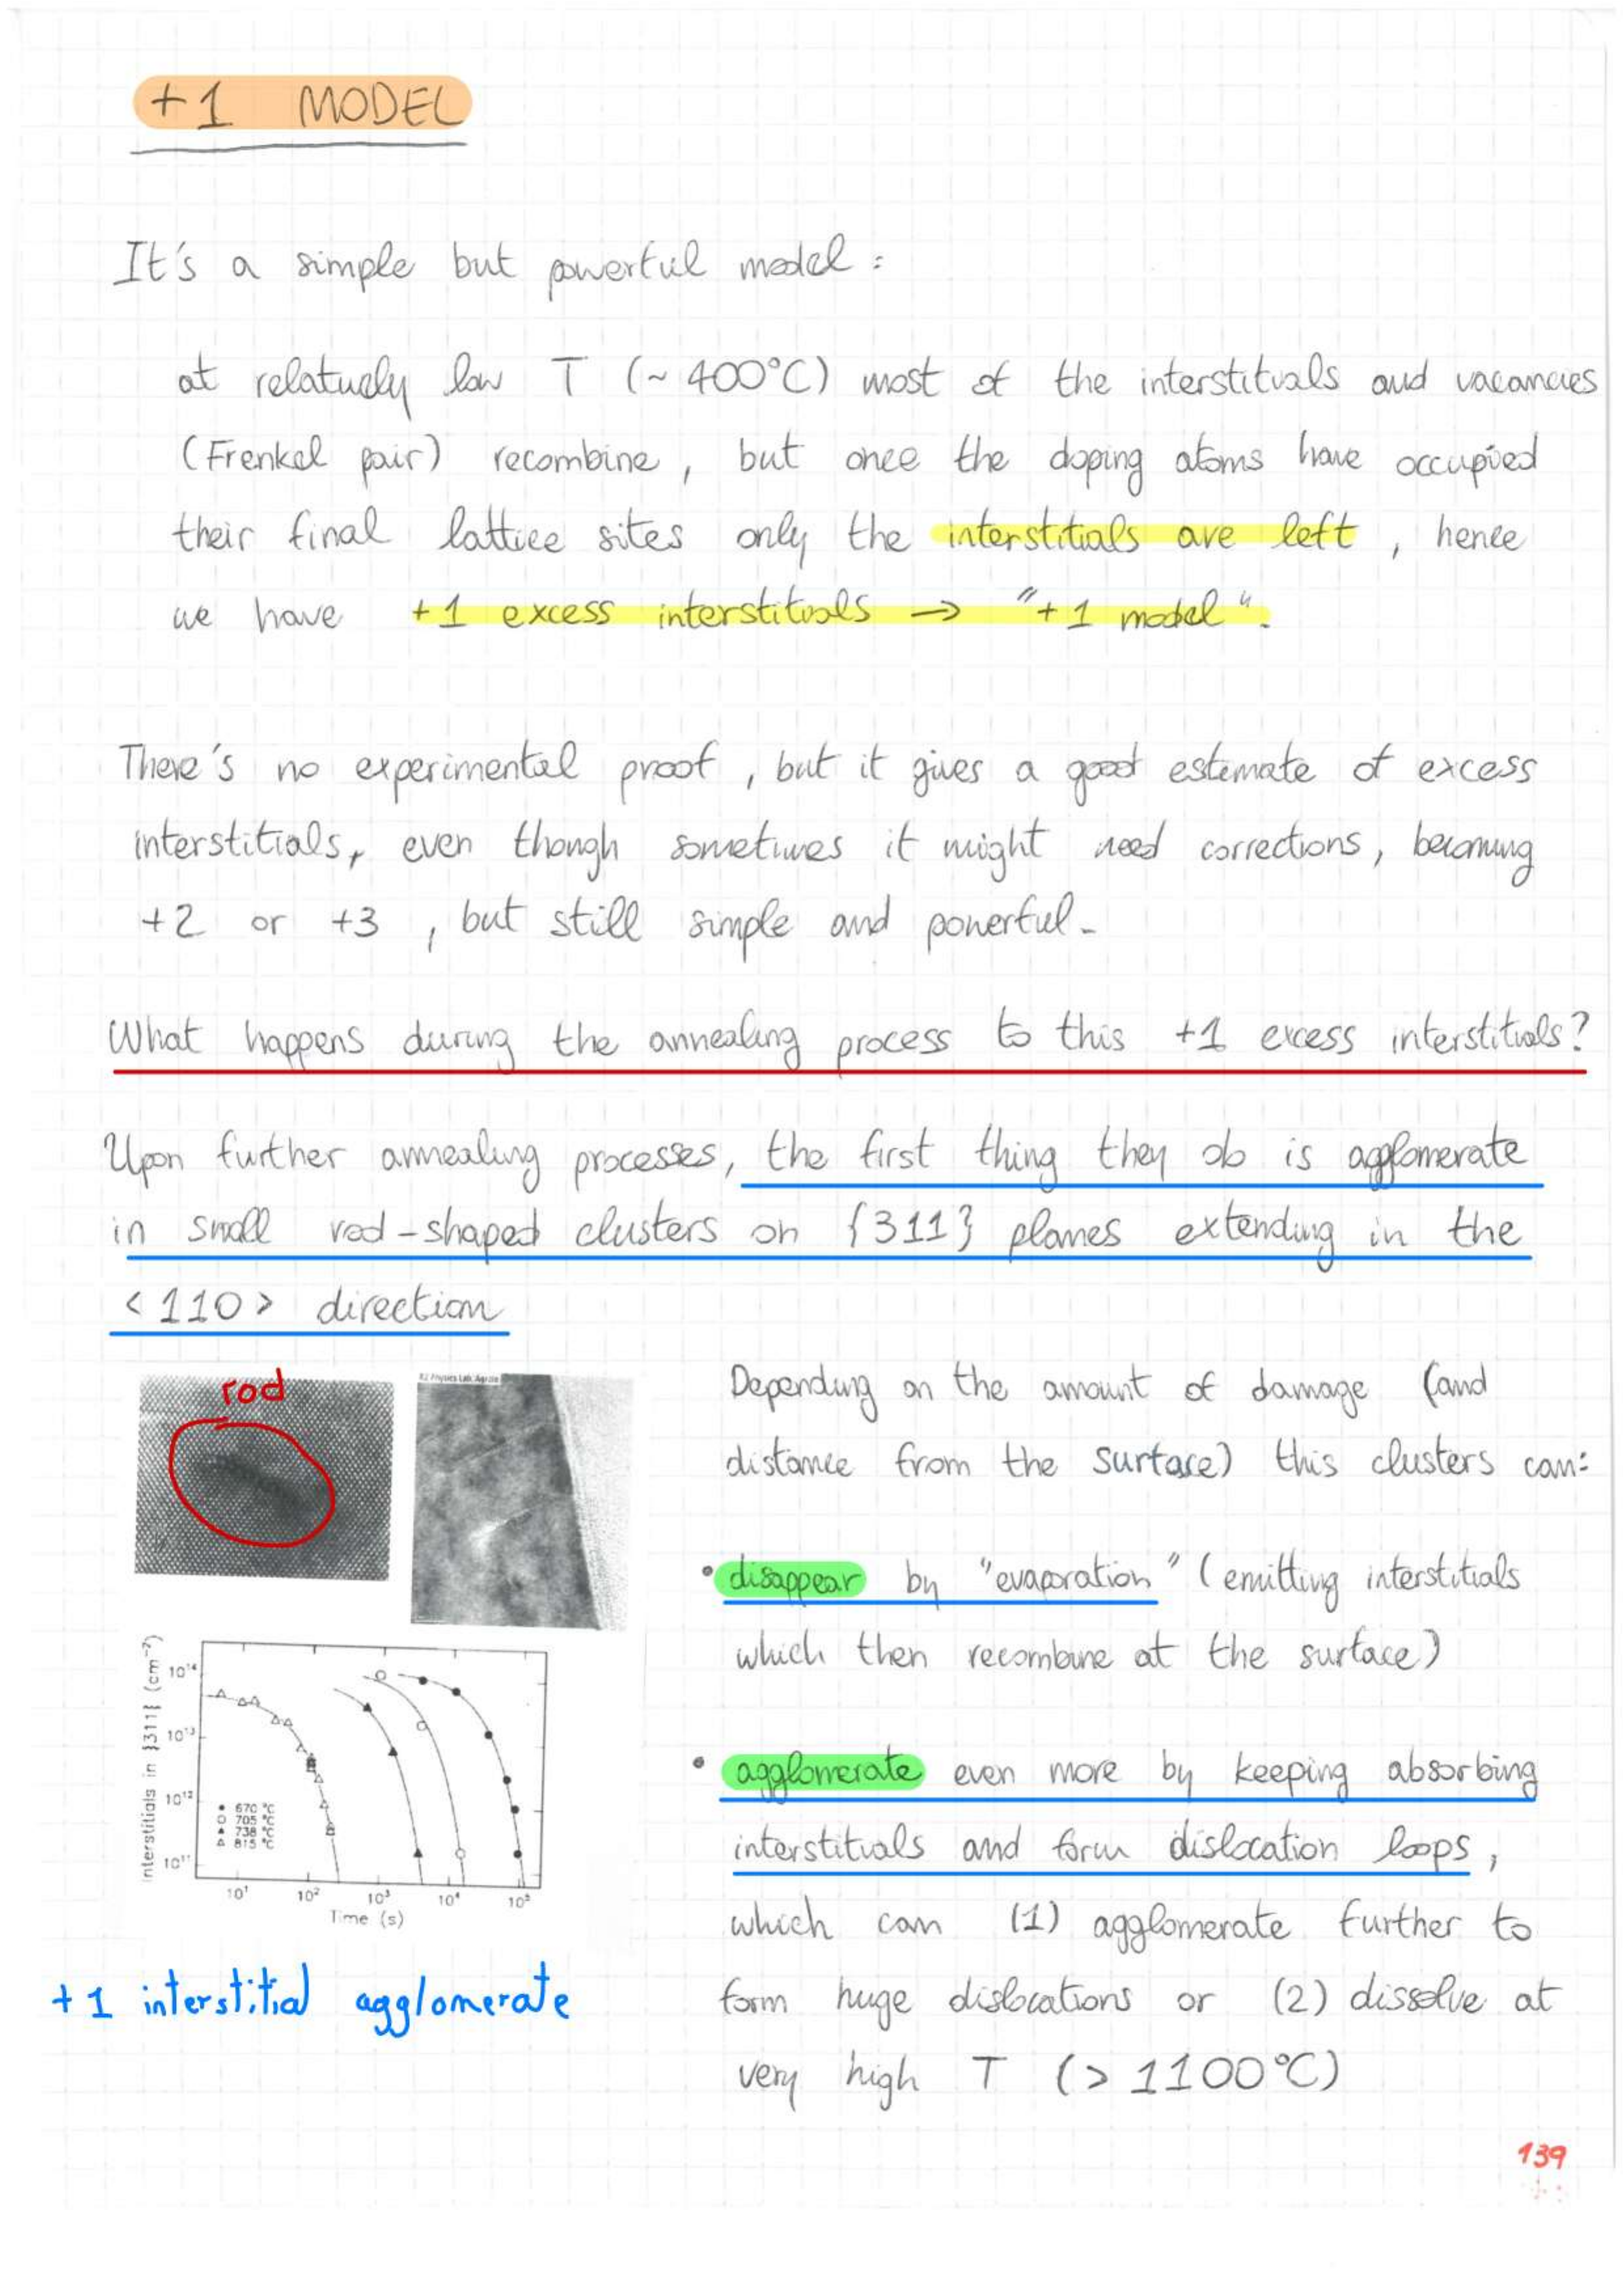 +1 MODEL
It's a simple but powerful model:
at relatively low T (~ 400°C) most of the interstitials and vacancies
(Frenkel pair) recombine, but once the doping atoms have occupied
their final lattice sites only the interstitials are left, hence
we have +1 excess interstitials → "+1 model".
There's no experimental proof, but it gives a good estimate of excess
interstitials, even though sometimes it might need corrections, becoming
+2 or +3, but still simple and powerful.
What happens during the annealing process to this +1 excess interstitials?
Upon further annealing processes, the first thing they do is agglomerate
in small rod-shaped clusters on {311} planes extending in the
<110> direction
rod
Depending on the amount of damage (and
distance from the surface) this clusters can:
• disappear by "evaporation" (emitting interstitials
which then recombine at the surface)
• agglomerate even more by keeping absorbing
interstitials and form dislocation loops,
which can (1) agglomerate further to
form huge dislocations or (2) dissolve at
very high T (> 1100°C)
Interstitials in {311} (cm⁻²)
10¹⁴
10¹³
10¹²
10¹¹
● 670 °C
○ 705 °C
▲ 738 °C
△ 815 °C
10¹ 10² 10³ 10⁴ 10⁵
Time (s)
+1 interstitial agglomerate
139